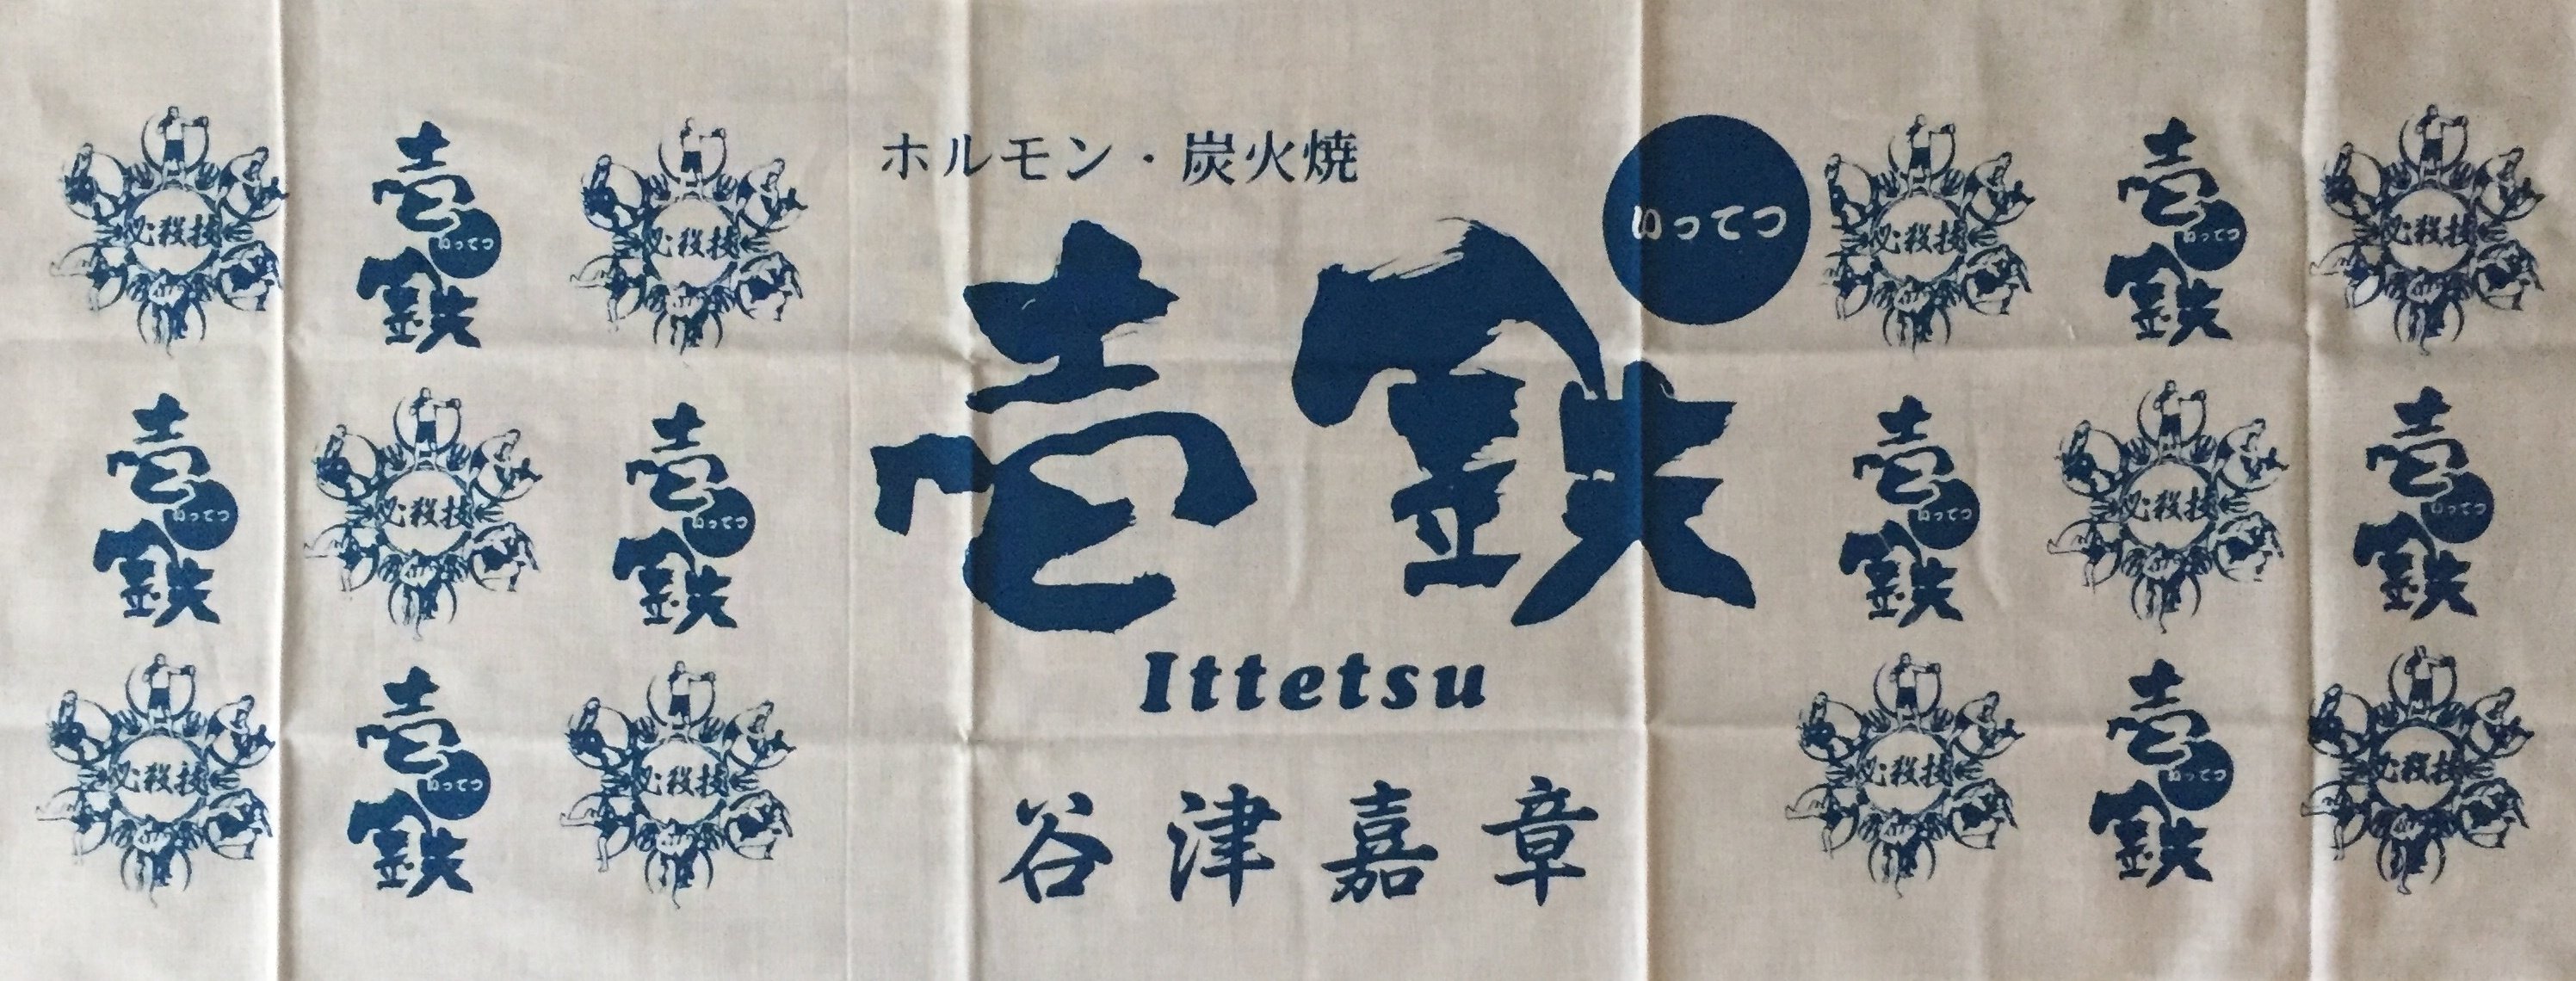 ホルモン・炭火焼
壱鉄
いってつ
Ittetsu
谷津嘉章
必殺技
壱鉄
いってつ
必殺技
必殺技
壱鉄
いってつ
必殺技
壱鉄
いってつ
必殺技
壱鉄
いってつ
壱鉄
いってつ
必殺技
壱鉄
いってつ
必殺技
壱鉄
いってつ
必殺技
必殺技
壱鉄
いってつ
必殺技